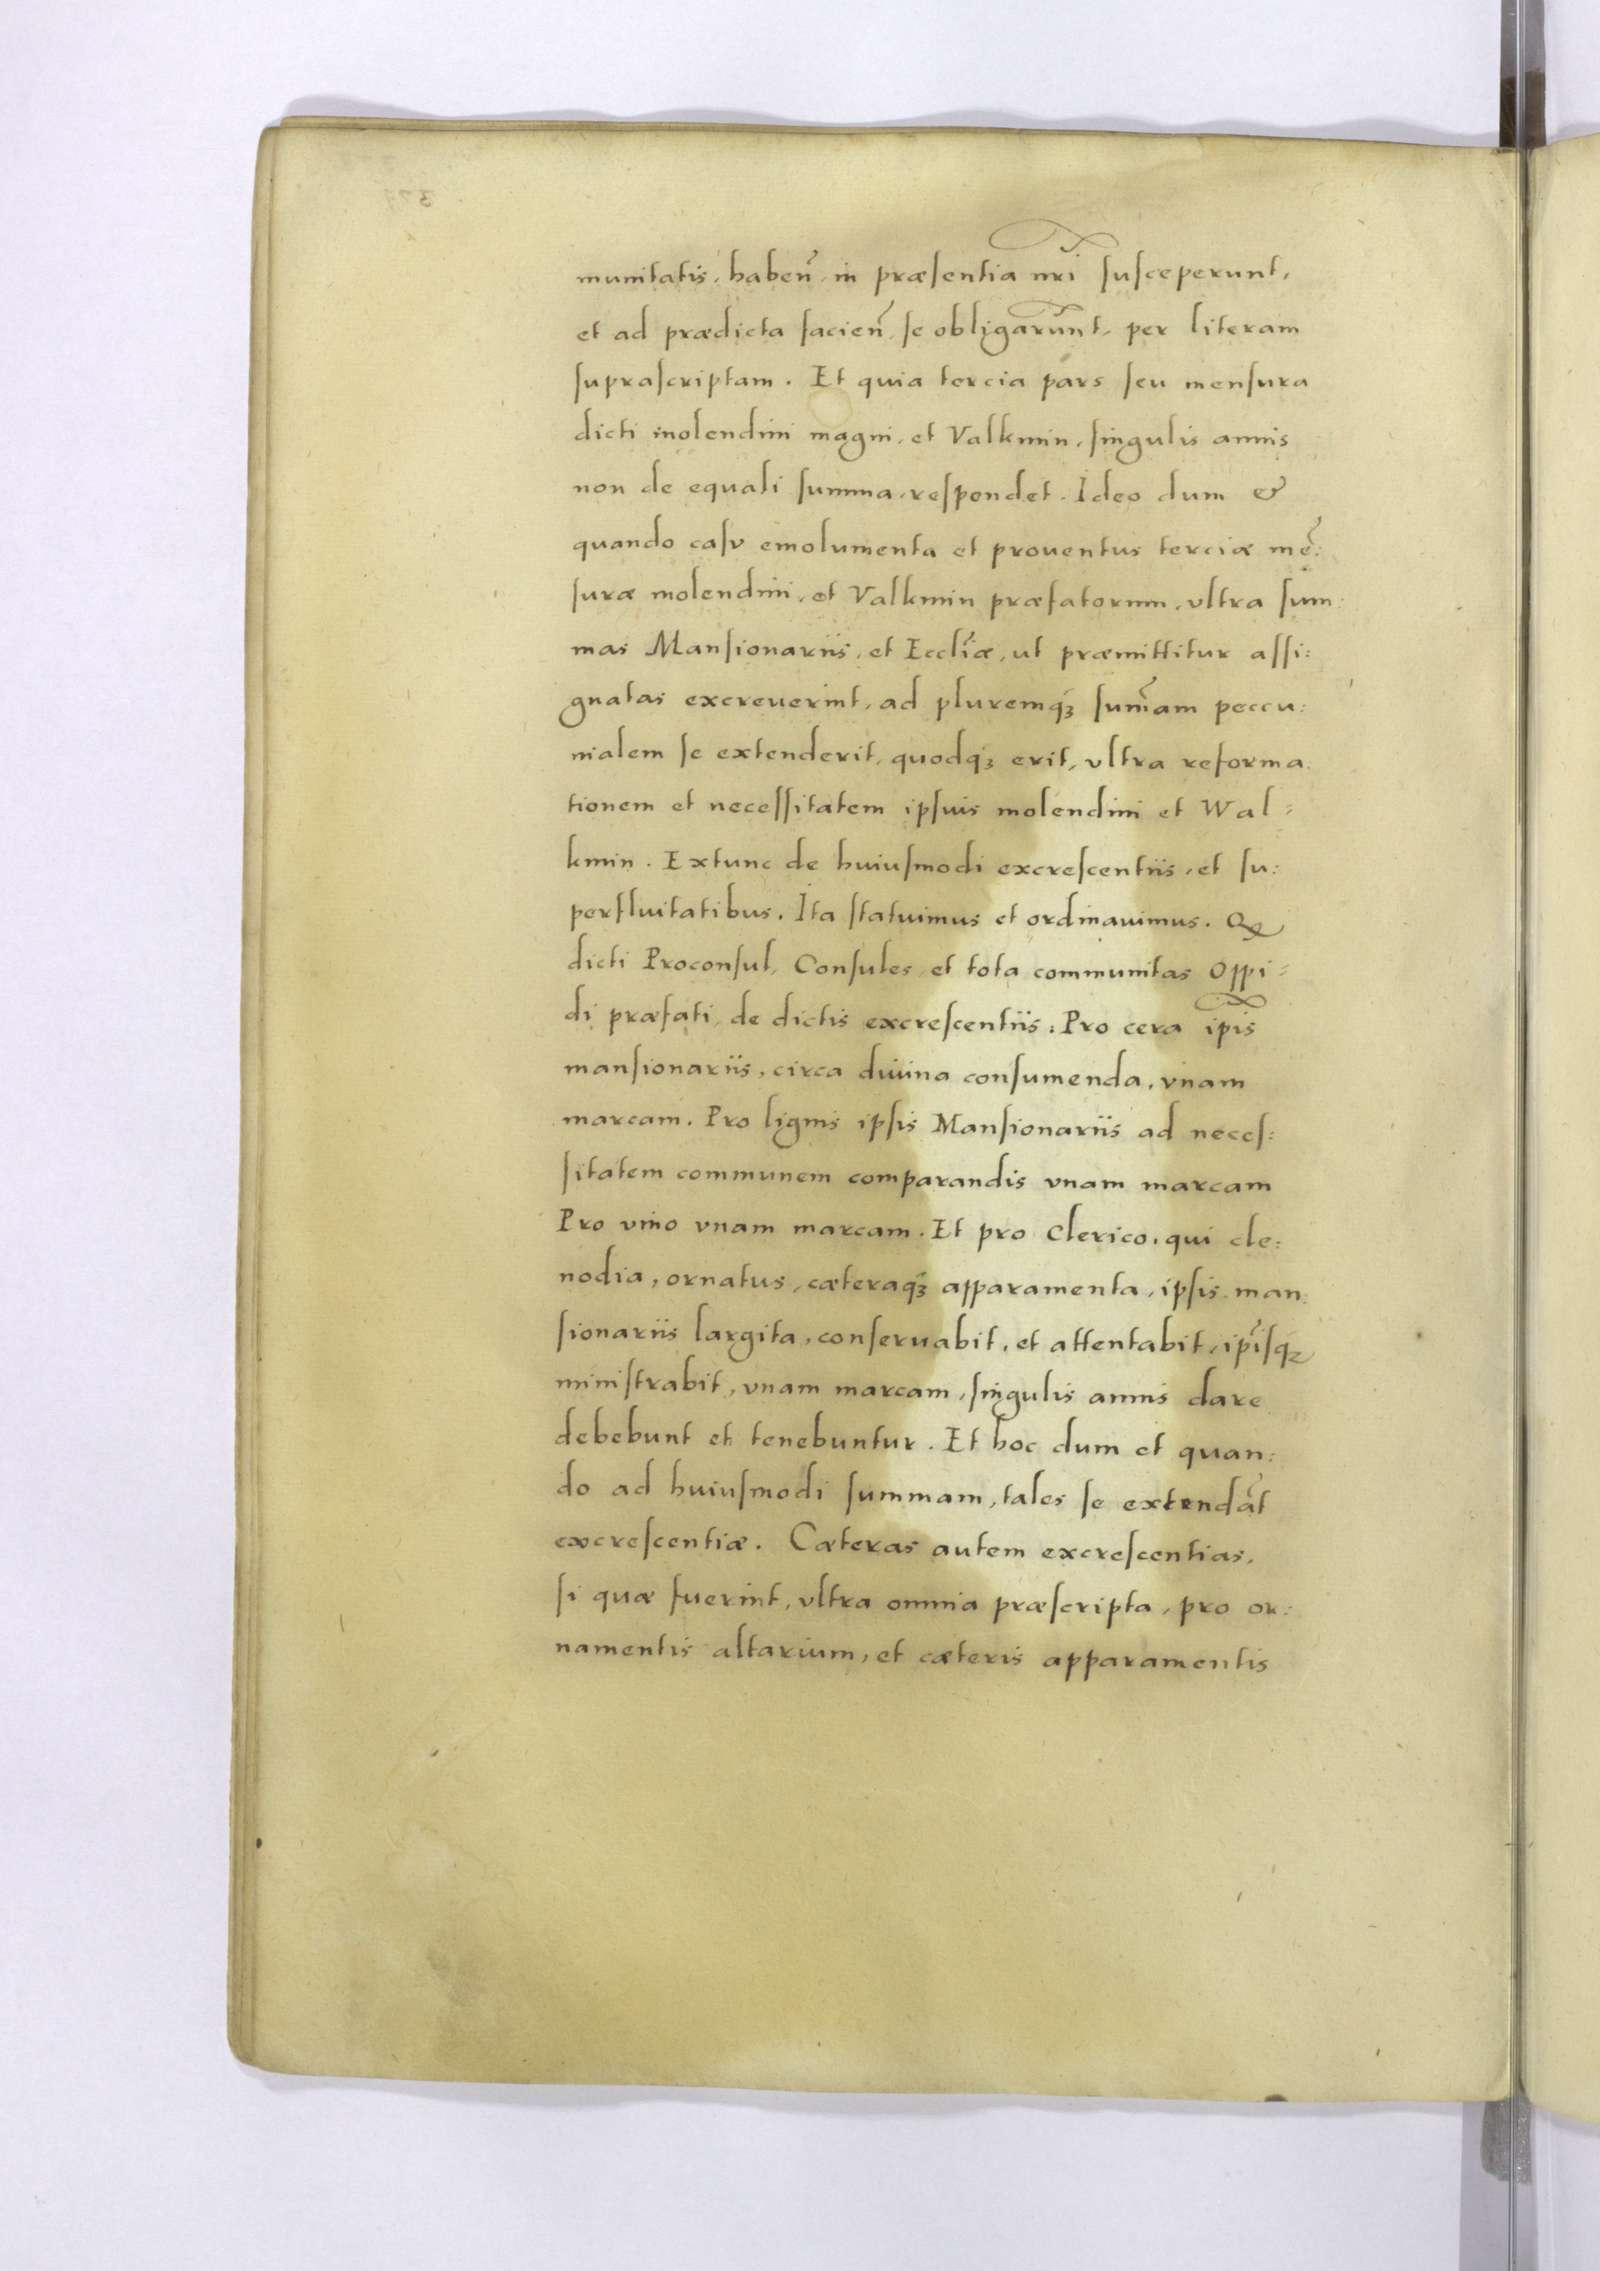 munitatis, haben̄, in præsentia nr̄i susceperunt,
et ad prædicta facien̄, se obligarūnt, per literam
suprascriptam. Et quia tercia pars seu mensura
dicti molendini magni, et Valkmin, singulis annis
non de equali summa, respondet. Ideo dum &
quando casv emolumenta et prouentus terciæ mē:
suræ molendini, et Valkmin præfatorum, vltra sum:
mas Mansionariis, et Eccl̄iæ, ut præmittitur assi:
gnatas excreuerint, ad pluremq́ꝫ sum̄am peccu:
nialem se extenderit, quodq́ꝫ erit, vltra reforma:
tionem et necessitatem ipsius molendini et Wal:
kmin. Extunc de huiusmodi excrescentiis, et su:
perfluitatibus. Ita statuimus et ordinauimus. Qꝫ
dicti Proconsul, Consules, et tota communitas Oppi:
di præfati, de dictis excrescentiis: Pro cera ip̄is
mansionariis, circa diuina consumenda, vnam
marcam. Pro lignis ipsis Mansionariis ad neces:
sitatem communem comparandis vnam marcam
Pro vino vnam marcam. Et pro Clerico, qui cle:
nodia, ornatus, cæteraq́ꝫ apparamenta, ipsis man:
sionariis largita, conseruabit, et attentabit, ip̄isqꝫ
ministrabit, vnam marcam, singulis annis dare
debebunt et tenebuntur. Et hoc dum et quan:
do ad huiusmodi summam, tales se extendāt
excrescentiæ. Cæteras autem excrescentias,
si quæ fuerint, vltra omnia præscripta, pro or:
namentis altarium, et cæteris apparamentis